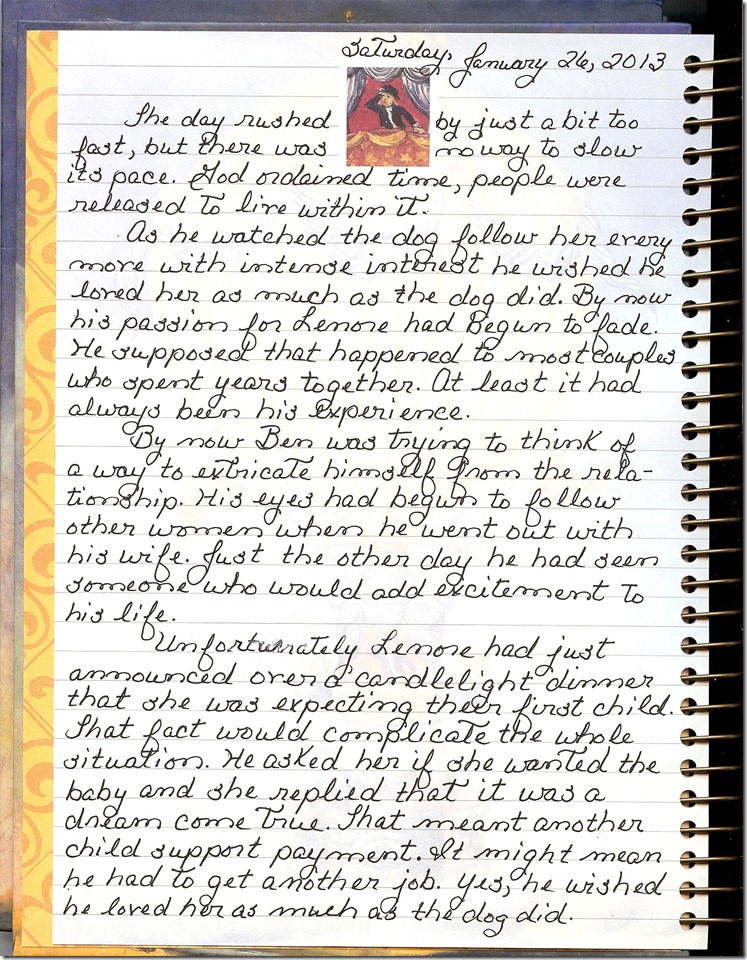 Saturday, January 26, 2013
The day rushed by just a bit too
fast, but there was no way to slow
its pace. God ordained time, people were
released to live within it.
As he watched the dog follow her every
move with intense interest he wished he
loved her as much as the dog did. By now
his passion for Lenore had Begun to fade.
He supposed that happened to most couples
who spent years together. At least it had
always been his experience.
By now Ben was trying to think of
a way to extricate himself from the rela-
tionship. His eyes had begun to follow
other women when he went out with
his wife. Just the other day he had seen
someone who would add excitement to
his life.
Unfortunately Lenore had just
announced over a candlelight dinner
that she was expecting their first child.
That fact would complicate the whole
situation. He asked her if she wanted the
baby and she replied that it was a
dream come true. That meant another
child support payment. It might mean
he had to get another job. Yes, he wished
he loved her as much as the dog did.